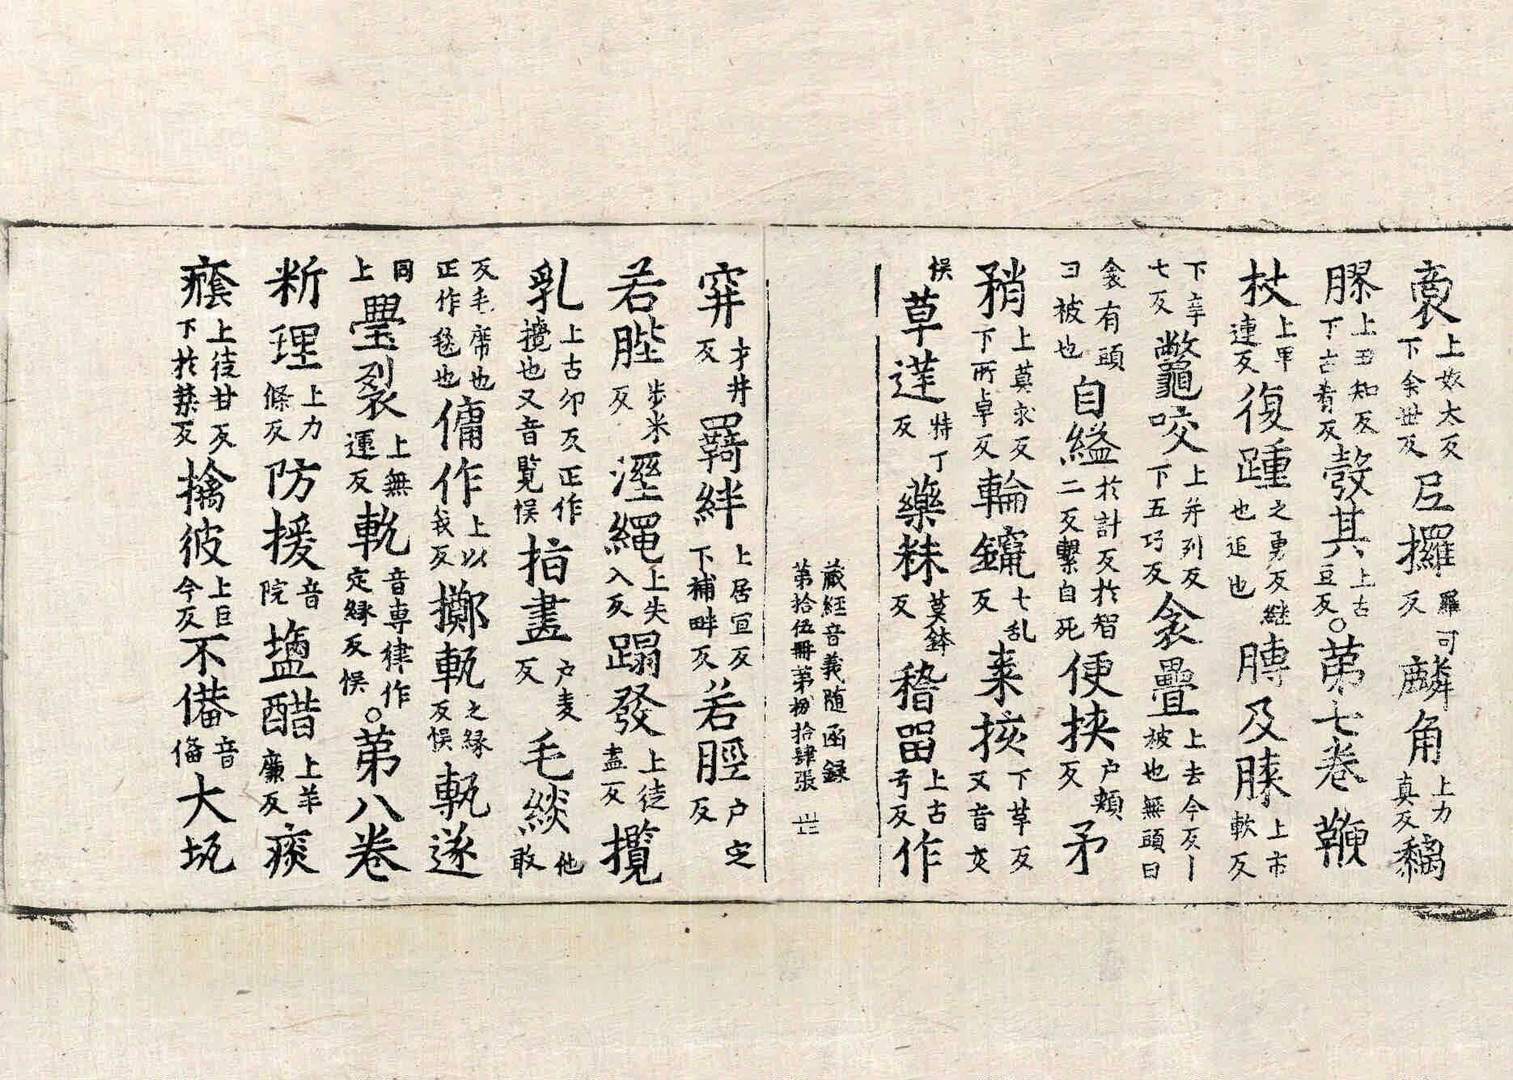 裔上奴太反下余世反𡰱攞羅可反麟角上力真反黐
膠上丑知反下古肴反㲉其上古豆反。第七卷鞭
杖上甲連反復踵之勇反継也迊也膞及膝上市軟反
下辛七反鼈咬上并列反下五巧反衾疊上去今反丨被也無頭曰
衾有頭曰被也自縊於計反於智二反繫自死便挾户頰反矛
矟上莫求反下所卓反輪鑹七乱反棄核下草反又音亥
悮草莛特丁反藥秣莫鉢反稽留上古兮反作
藏經音義随函録
第拾伍冊第捌拾肆張
穽才井反羇絆上居宜反下補畔反若脛户定反
若䏶步米反溼繩上失入反蹋發上徒盍反攬
乳上古卯反正作攪也又音覧悮㨖畫户麦反毛緂他敢
反毛席也正作毯也傭作上以我反擲𨋎之縁反悮𨋎遂
同上璺裂上無運反𨋎音専律作定縁反悮。第八卷
斱理上力條反防援音院塩醋上羊廉反痰
癊上徒甘反下於禁反擒彼上巨今反不俻音備大坑